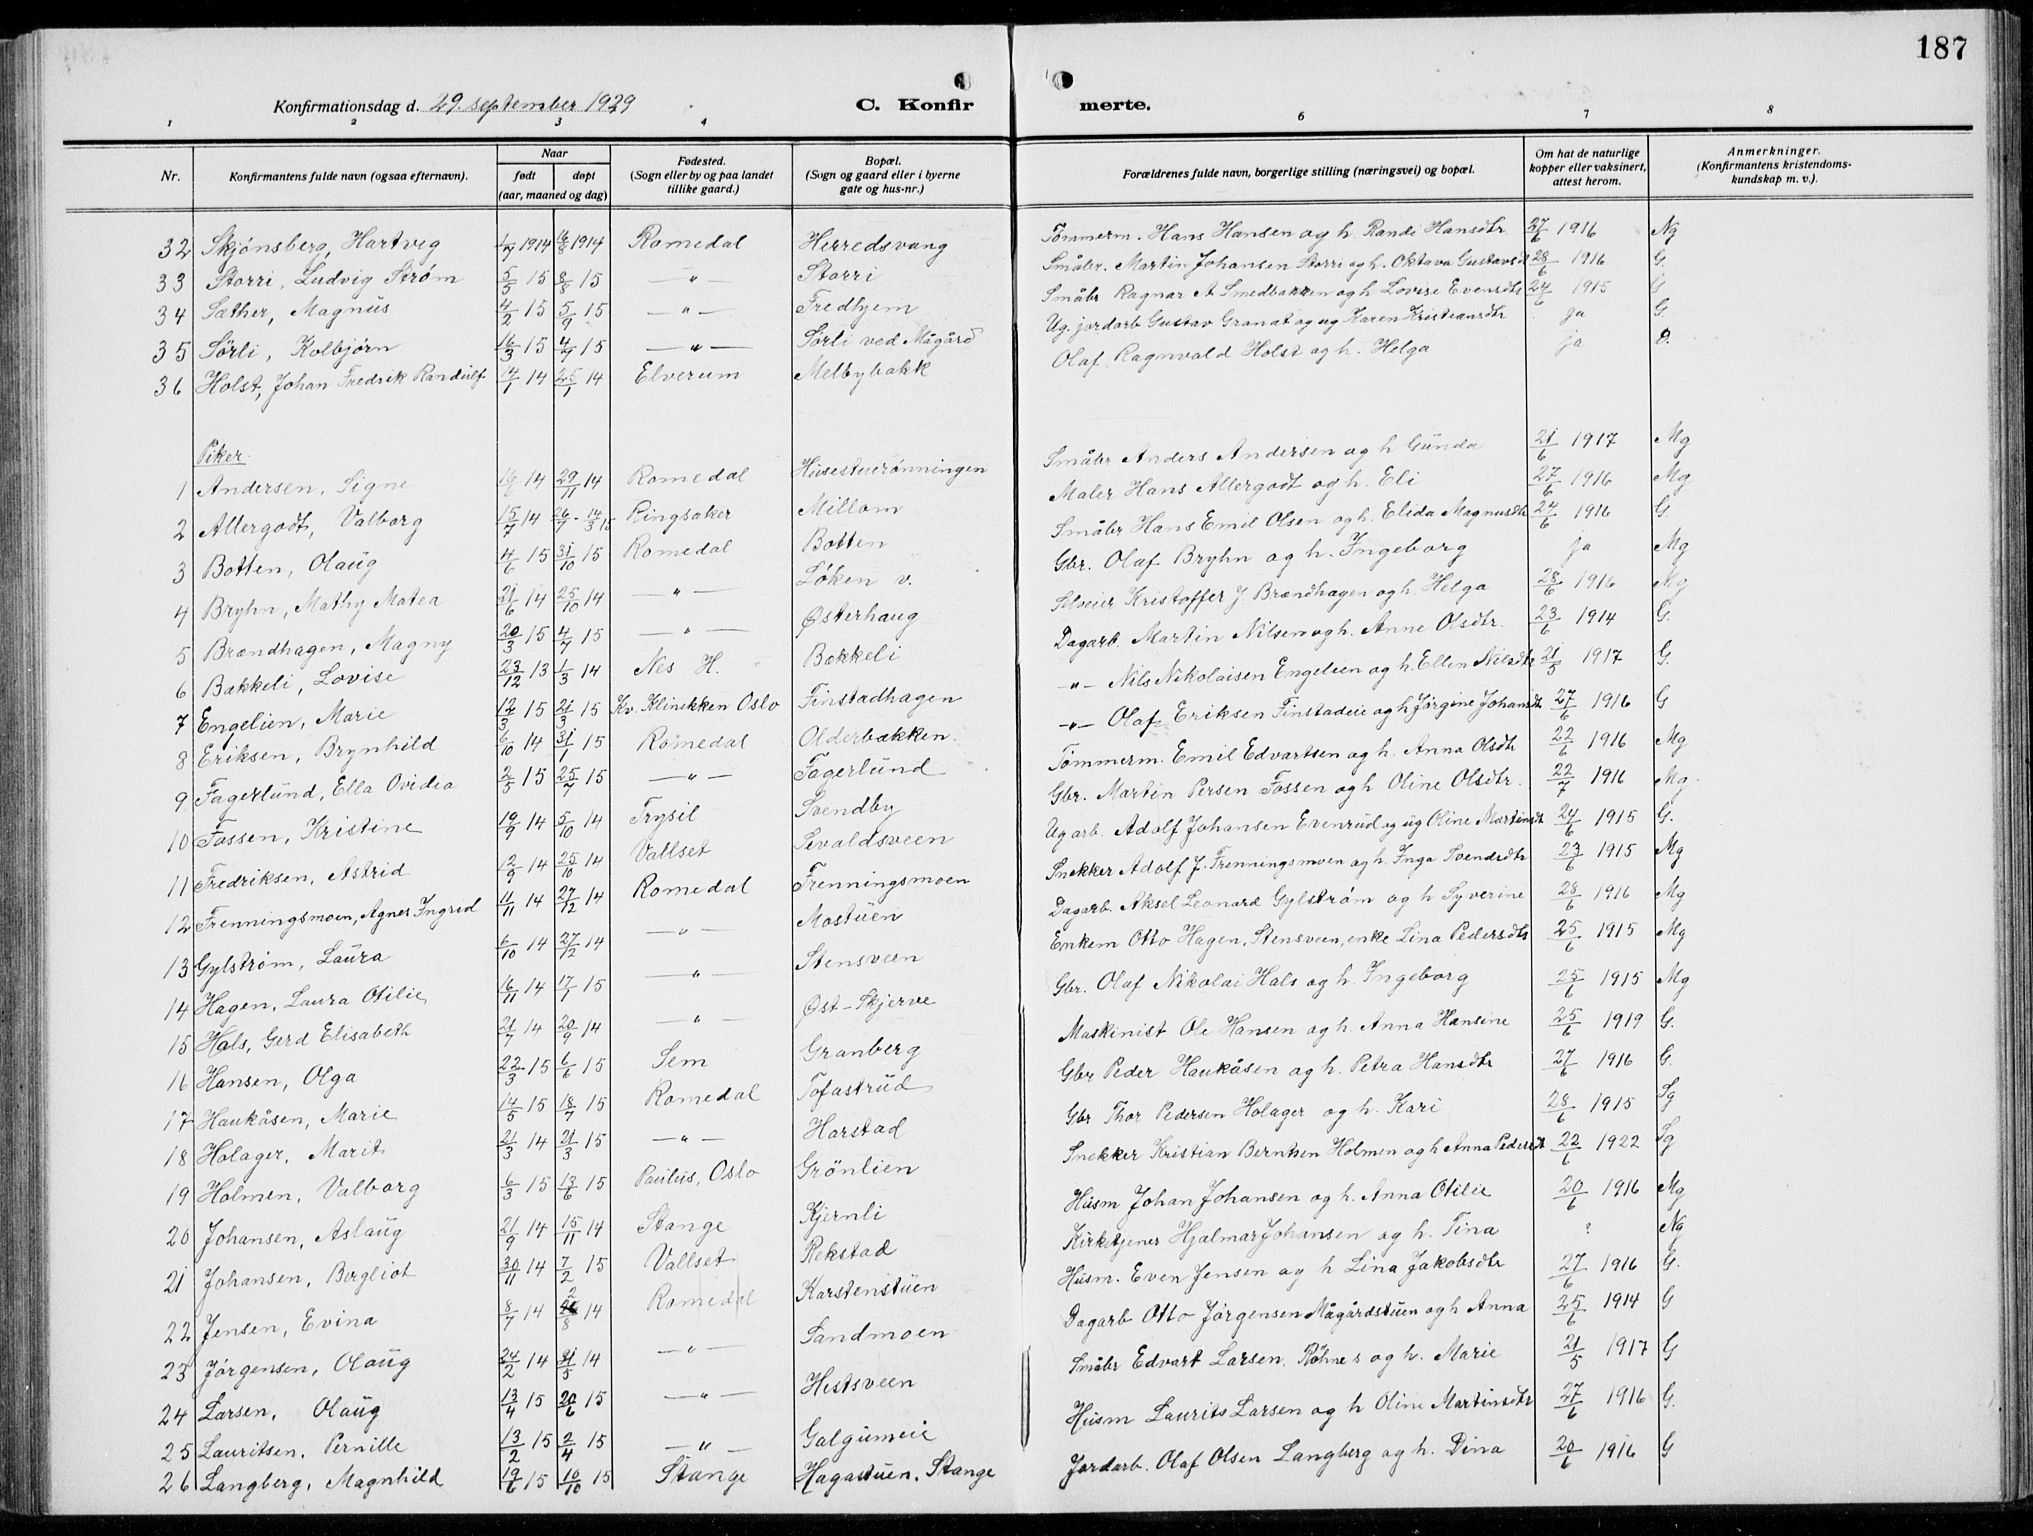 187
Konfirmationsdag d. 29. september 1929 C. Konfirmerte.
1 2 3 4 6 7 8
Nr. Konfirmantens fulde navn (ogsaa efternavn). Naar født døpt (aar, maaned og dag) Fødested. (Sogn eller by og paa landet tillike gaard.) Bopæl. (Sogn og gaard eller i byerne gate og hus-nr.) Forældrenes fulde navn, borgerlige stilling (næringsvei) og bopæl. Om hat de naturlige kopper eller vaksinert, attest herom. Anmerkninger. (Konfirmantens kristendomskundskap m. v.).
32 Skjønsberg, Hartvig 1/7 1914 16/8 1914 Romedal Herredsvang Tømmerm. Hans Hansen og h. Randi Hansdtr 27/6 1916 Ng
33 Storri, Ludvig Strøm 5/5 15 8/8 15 — " — Storri Småbr. Martin Johansen Storri og h. Oktava Gustavsdt 28/6 1916 G.
34 Sæther, Magnus 4/2 15 5/9 15 — " — Fredhjem Småbr Ragnar A Smedbakken og h Lovise Evensdtr 24/6 1915 G
35 Sørli, Kolbjørn 16/3 15 4/7 15 — " — Sørli ved Mågård Ug. jordarb Gustav Granat og ug Karen Kristiansdtr ja G.
36 Holst, Johan Fredrik Randulf 14/1 14 25/1 14 Elverum Melbybakk Olaf Ragnvald Holst og h. Helga ja
Piker.
1 Andersen, Signe 16/6 14 29/11 14 Romedal Husestuerønningen Småbr Anders Andersen og h Gunda 21/6 1917 Mg
2 Allergodt, Valborg 15/7 14 26/7 - 14/3 15 Ringsaker Millom Maler Hans Allergodt og h. Eli 27/6 1916 Mg
3 Botten, Olaug 4/6 15 31/10 15 Romedal Botten Småbr Hans Emil Olsen og h. Elida Magnusdtr 24/6 1916 G.
4 Bryhn, Mathy Matea 21/6 14 25/10 14 — " — Løken v. Gbr. Olaf Bryhn og h. Ingeborg ja Mg
5 Brændhagen, Magny 20/3 15 4/7 15 — " — Østerhaug Selveier Kristoffer J. Brændhagen og h. Helga 28/6 1916 Mg
6 Bækkeli, Lovise 23/12 13 1/3 14 Nes H. Bækkeli Dagarb. Martin Nilsen og h. Anne Olsdtr. 23/6 1914 G.
7 Engelien, Marie 12/3 15 21/3 15 Kv. Klinikken Oslo Finstadhagen — " — Nils Nikolaisen Engelien og h. Ellen Nilsdtr 21/5 1917 G.
8 Eriksen, Brynhild 6/10 14 31/1 15 Romedal Olderbakken. — " — Olaf Eriksen Finstadeie og h Jørgine Johansdt 27/6 1916 G
9 Fagerlund, Ella Ovidia 2/5 15 25/7 15 — " — Fagerlund Tømmerm. Emil Edvartsen og h. Anna Olsdtr 22/6 1916 Mg
10 Fossen, Kristine 19/9 14 5/10 14 Trysil Svendby Gbr. Martin Persen Fossen og h Oline Olsdtr. 22/7 1916 Mg.
11 Fredriksen, Astrid 12/9 14 25/10 14 Vallset Sevaldsveen Ug arb. Adolf Johansen Evenrud og ug Oline Martinsdt 24/6 1915 G.
12 Frenningsmoen, Agnes Ingrid 11/11 14 27/12 14 Romedal Frenningsmoen Snekker Adolf J. Frenningsmoen og h. Inga Svendsdtr 23/6 1915 Mg
13 Gylstrøm, Laura 6/10 14 27/12 14 — " — Mostuen Dagarb. Aksel Leonard Gylstrøm og h Syverine 28/6 1916 Mg
14 Hagen, Laura Otilie 16/11 14 17/1 15 — " — Stensveen Enkem Otto Hagen, Stensveen, enke Lina Pedersdtr 25/6 1915 Mg
15 Hals, Gerd Elisabeth 21/7 14 20/9 14 — " — Øst-Skjerve Gbr. Olaf Nikolai Hals og h. Ingeborg 25/6 1915 Mg
16 Hansen, Olga 22/3 15 6/6 15 Sem Granberg Maskinist Ole Hansen og h Anna Hansine 25/6 1919 G.
17 Haukåsen, Marie 14/5 15 18/7 15 Romedal Tofastrud Gbr Peder Haukåsen og h. Petra Hansdtr 27/6 1916 G.
18 Holager, Marit 21/3 14 21/3 15 — " — Harstad Gbr Thor Pedersen Holager og h. Kari 28/6 1915 Sg
19 Holmen, Valborg 6/3 15 13/6 15 Paulus, Oslo Grønlien Snekker Kristian Berntsen Holmen og h Anna Pedersdt 22/6 1922 Sg
20 Johansen, Aslaug 21/9 14 15/11 14 Stange Kjernli Husm Johan Johansen og h. Anna Otilie 20/6 1916 Mg
21 Johansen, Bergliot 30/11 14 7/2 15 Vallset Rekstad Kirketjener Hjalmar Johansen og h. Tina ? Ng
22 Jensen, Evina 8/7 14 2/8 14 Romedal Karstenstuen Husm. Even Jensen og h Lina Jakobsdtr 27/6 1916 G.
23 Jørgensen, Olaug 24/2 14 21/5 14 — " — Sandmoen Dagarb Otto Jørgensen Mågårdstuen og h Anna 25/6 1914 G
24 Larsen, Olaug 13/4 15 20/6 15 — " — Hestsveen Småbr Edvart Larsen, Rohnes og h. Marie 21/5 1917 G
25 Lauritsen, Pernille 13/2 15 2/4 15 — " — Galgumeie Husm Laurits Larsen og h Oline Martinsdtr 27/6 1916 G.
26 Langberg, Magnhild 19/6 15 10/10 15 Stange Hagastuen, Stange Jordarb. Olaf Olsen Langberg og h. Dina 20/6 1916 G